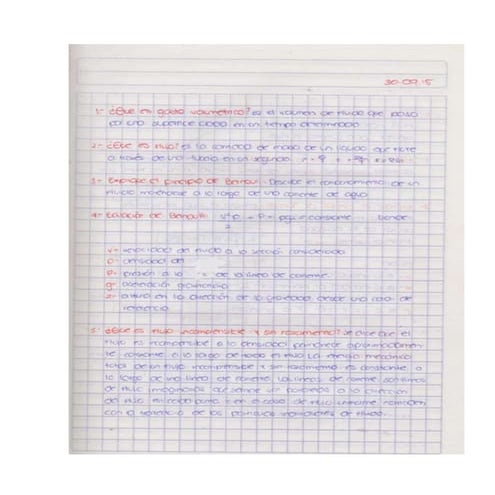 30-09-15
1- ¿Que es gasto volumetrico? es el volumen de fluido que pasa
por una superficie dada en un tiempo determinado
2- ¿Que es flujo? es la cantidad de masa de un liquido que fluye
a través de una tuberia en un segundo.
3- Explique el principio de Bernoulli. Describe el comportamiento de un
fluido moviendose a lo largo de una corriente de agua
4- Ecuación de Bernoulli V²ρ + P + ρgz = constante donde
2
v- velocidad del fluido a la sección considerada
ρ- densidad del
P- presión a lo de la linea de corriente
g- aceleración gravitatoria
z- altura en la dirección de la gravedad desde una cota de
referencia
5- ¿Que es flujo incompresible y sin rozamiento? se dice que el
flujo es incompresible si la densidad permanece aproximadamen
te constante a lo largo de todo el flujo. La energia mecanica
total de un flujo incompresible y sin rozamiento es constante a
lo largo de una linea de corriente. Las lineas de corriente son lineas
de flujo imaginarias que siempre son paralelas a la dirección
del flujo en cada punto y en el caso de flujo uniforme coinciden
con la de las particulas individuales de fluido.